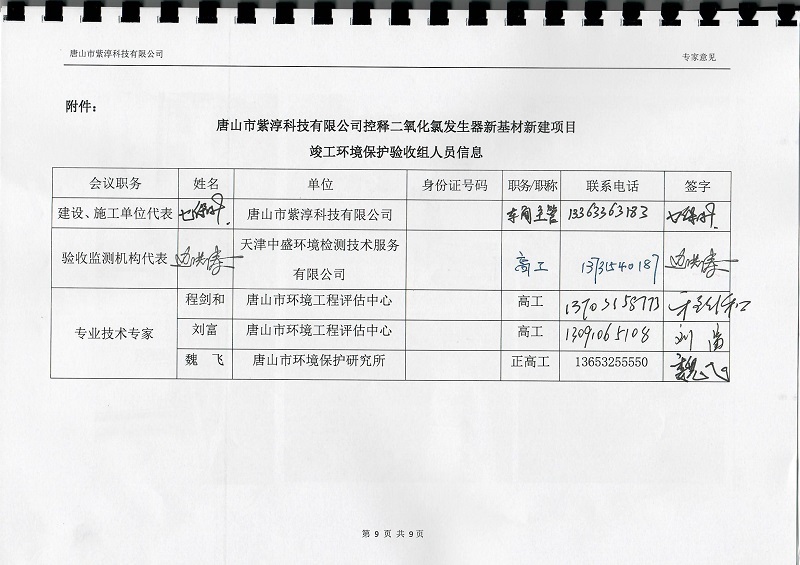 唐山市紫淳科技有限公司
专家意见
附件：
唐山市紫淳科技有限公司控释二氧化氯发生器新基材新建项目
竣工环境保护验收组人员信息
会议职务 姓名 单位 身份证号码 职务/职称 联系电话 签字
建设、施工单位代表 唐山市紫淳科技有限公司 车间主管 13363363183
验收监测机构代表 天津中盛环境检测技术服务
有限公司 高工 13731540187
专业技术专家
程剑和 唐山市环境工程评估中心 高工 13703158773 程剑和
刘富 唐山市环境工程评估中心 高工 13091065108 刘富
魏 飞 唐山市环境保护研究所 正高工 13653255550 魏飞
第 9 页 共 9 页